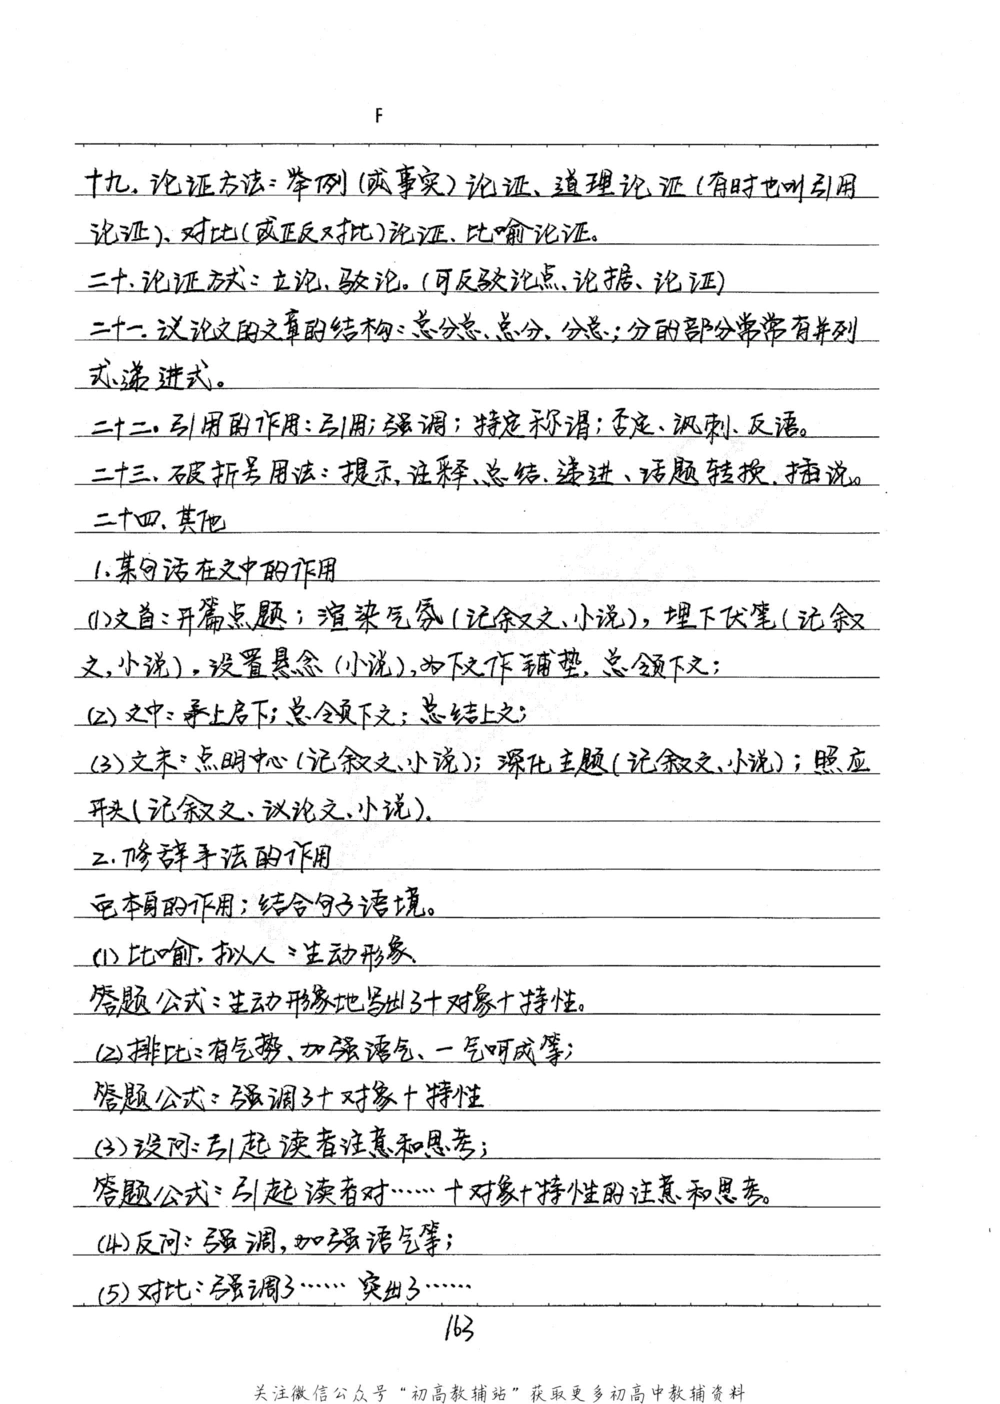 F
十九、论证方法：举例（或事实）论证、道理论证（有时也叫引用
论证）、对比（或正反对比）论证、比喻论证。
二十、论证方式：立论、驳论。（可反驳论点、论据、论证）
二十一、议论文的文章的结构：总分总、总分、分总；分的部分常常有并列
式、递进式。
二十二、引用的作用：引用；强调；特定称谓；否定、讽刺、反语。
二十三、破折号用法：提示、注释、总结、递进、话题转换、插说。
二十四、其他
1.某句话在文中的作用
(1)文首：开篇点题；渲染气氛（记叙文、小说），埋下伏笔（记叙
文、小说），设置悬念（小说），为下文作铺垫，总领下文；
(2)文中：承上启下；总领下文；总结上文；
(3)文末：点明中心（记叙文、小说）；深化主题（记叙文、小说）；照应
开头（记叙文、议论文、小说）。
2.修辞手法的作用
它本身的作用；结合句子语境。
(1)比喻、拟人：生动形象、
答题公式：生动形象地写出了+对象+特性。
(2)排比：有气势、加强语气、一气呵成等；
答题公式：强调了+对象+特性
(3)设问：引起读者注意和思考；
答题公式：引起读者对……+对象+特性的注意和思考。
(4)反问：强调，加强语气等；
(5)对比：强调了……突出了……
163
关注微信公众号“初高教辅站”获取更多初高中教辅资料